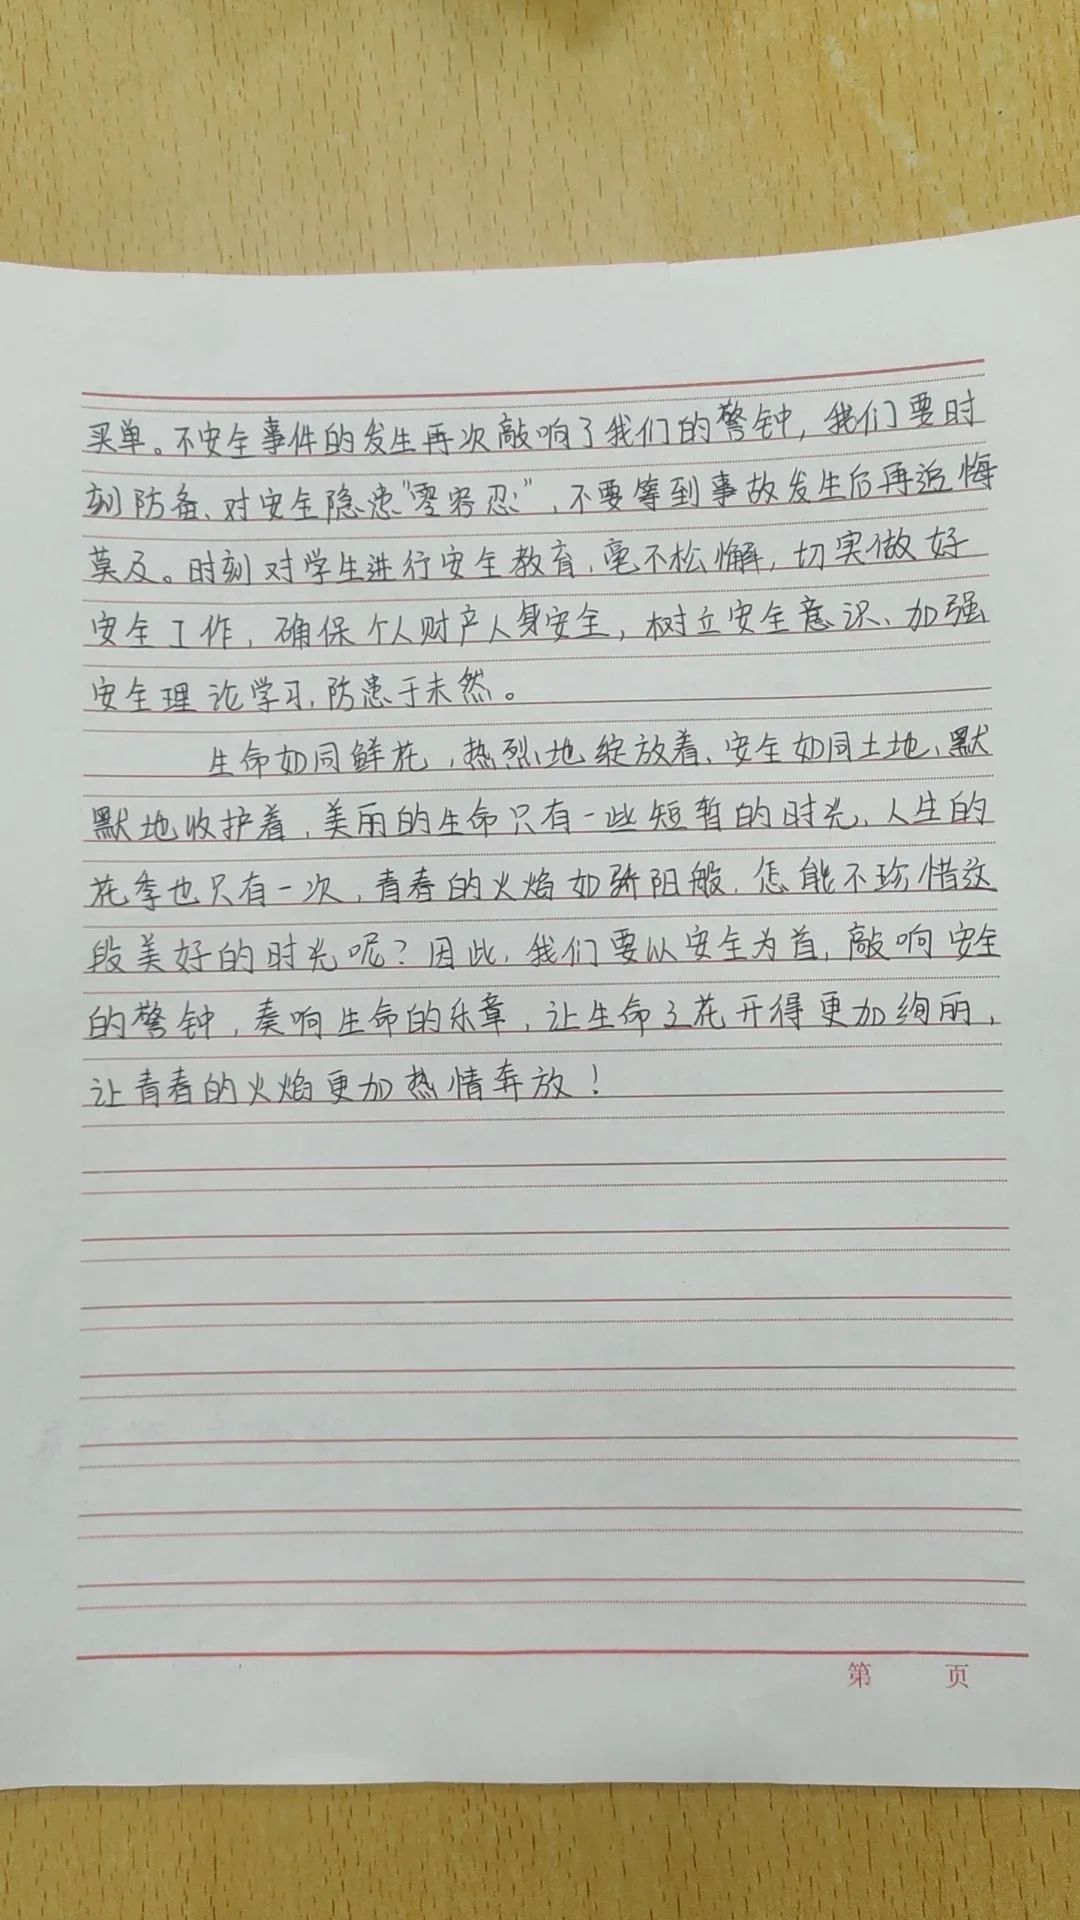 买单。不安全事件的发生再次敲响了我们的警钟，我们要时
刻防备、对安全隐患“零容忍”，不要等到事故发生后再追悔
莫及。时刻对学生进行安全教育，毫不松懈，切实做好
安全工作，确保个人财产人身安全，树立安全意识、加强
安全理论学习，防患于未然。
生命如同鲜花，热烈地绽放着、安全如同土地、默
默地收护着，美丽的生命只有一些短暂的时光、人生的
花季也只有一次，青春的火焰如骄阳般，怎能不珍惜这
段美好的时光呢？因此，我们要以安全为首，敲响安全
的警钟，奏响生命的乐章，让生命之花开得更加绚丽，
让青春的火焰更加热情奔放！
第 页